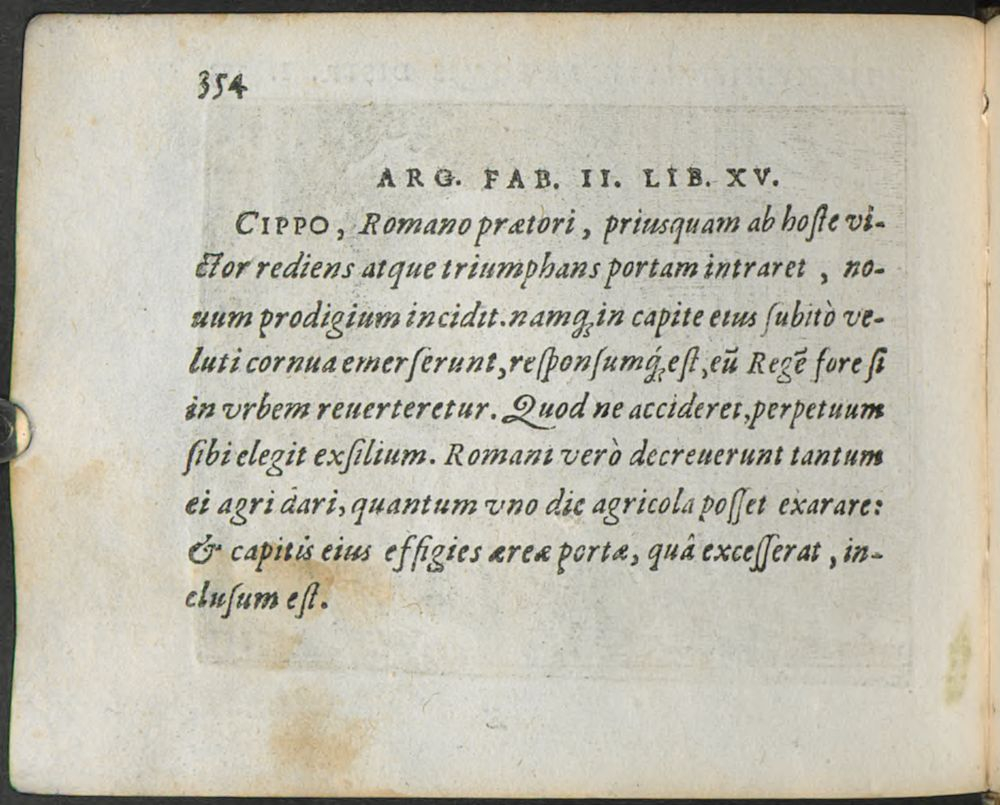 354
ARG. FAB. II. LIB. XV.
CIPPO, Romano prætori, priusquam ab hoſte vi-
ctor rediens atque triumphans portam intraret, no-
uum prodigium incidit. namq́; in capite eius ſubitò ve-
luti cornua emerſerunt, reſponſumq́; eſt, eū Regē fore ſi
in vrbem reuerteretur. Quod ne accideret, perpetuum
ſibi elegit exſilium. Romani verò decreuerunt tantum
ei agri dari, quantum vno die agricola poſſet exarare:
& capitis eius effigies æreæ portæ, quâ exceſſerat, in-
cluſum eſt.